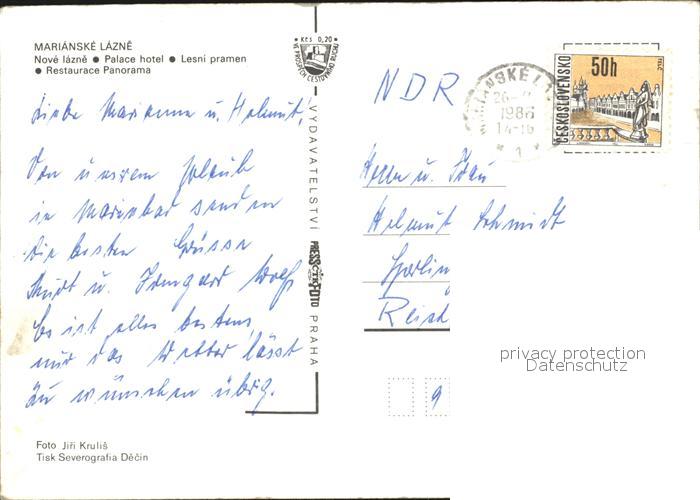 MARIÁNSKÉ LÁZNĚ
Nové lázně ● Palace hotel ● Lesní pramen
● Restaurace Panorama
Kčs 0,20
VE PROSPĚCH CESTOVNÍHO RUCHU
Liebe Marianna u. Helmut,
Von unserem Urlaub
in Marienbad senden
die besten Grüsse
Kurt u. Irmgard
Es ist alles bestens,
nur das Wetter lässt
zu wünschen übrig.
VYDAVATELSTVÍ PRESSFOTO PRAHA
Foto Jiří Kruliš
Tisk Severografia Děčín
NDR
1986
ČESKOSLOVENSKO
50h
TELČ
Herrn u. Frau
Helmut Schmidt
Berlin
9
privacy protection
Datenschutz